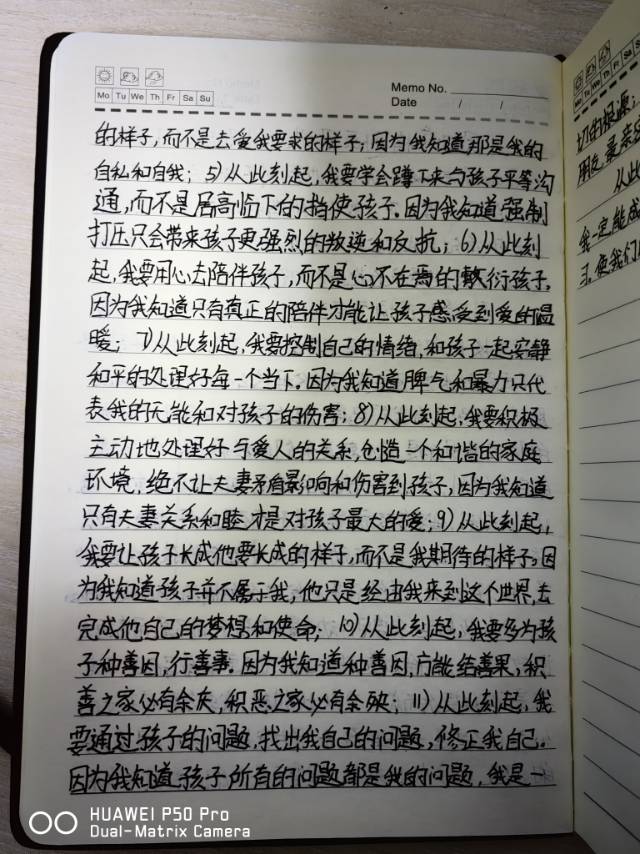 Mo Tu We Th Fr Sa Su
Memo No.
Date / /
的样子,而不是去爱我要求的样子;因为我知道那是我的
自私和自我;5)从此刻起,我要学会蹲下来与孩子平等沟
通,而不是居高临下的指使孩子.因为我知道强制
打压只会带来孩子更强烈的叛逆和反抗;6)从此刻
起,我要用心去陪伴孩子,而不是心不在焉的敷衍孩子.
因为我知道只有真正的陪伴才能让孩子感受到爱的温
暖;7)从此刻起,我要控制自己的情绪,和孩子一起安静
和平的处理好每一个当下.因为我知道脾气和暴力只代
表我的无能和对孩子的伤害;8)从此刻起,我要积极
主动地处理好与爱人的关系,创造一个和谐的家庭
环境,绝不让夫妻矛盾影响和伤害到孩子,因为我知道
只有夫妻关系和睦才是对孩子最大的爱;9)从此刻起,
我要让孩子长成他要长成的样子,而不是我期待的样子;因
为我知道孩子并不属于我,他只是经由我来到这个世界,去
完成他自己的梦想和使命;10)从此刻起,我要多为孩
子种善因,行善事.因为我知道种善因,方能结善果,积
善之家必有余庆,积恶之家必有余殃;11)从此刻起,我
要通过孩子的问题,找出我自己的问题,修正我自己.
因为我知道孩子所有的问题都是我的问题,我是一
切的根源;
朋友,最亲
从此
我一定能成
习.使我们
HUAWEI P50 Pro
Dual-Matrix Camera